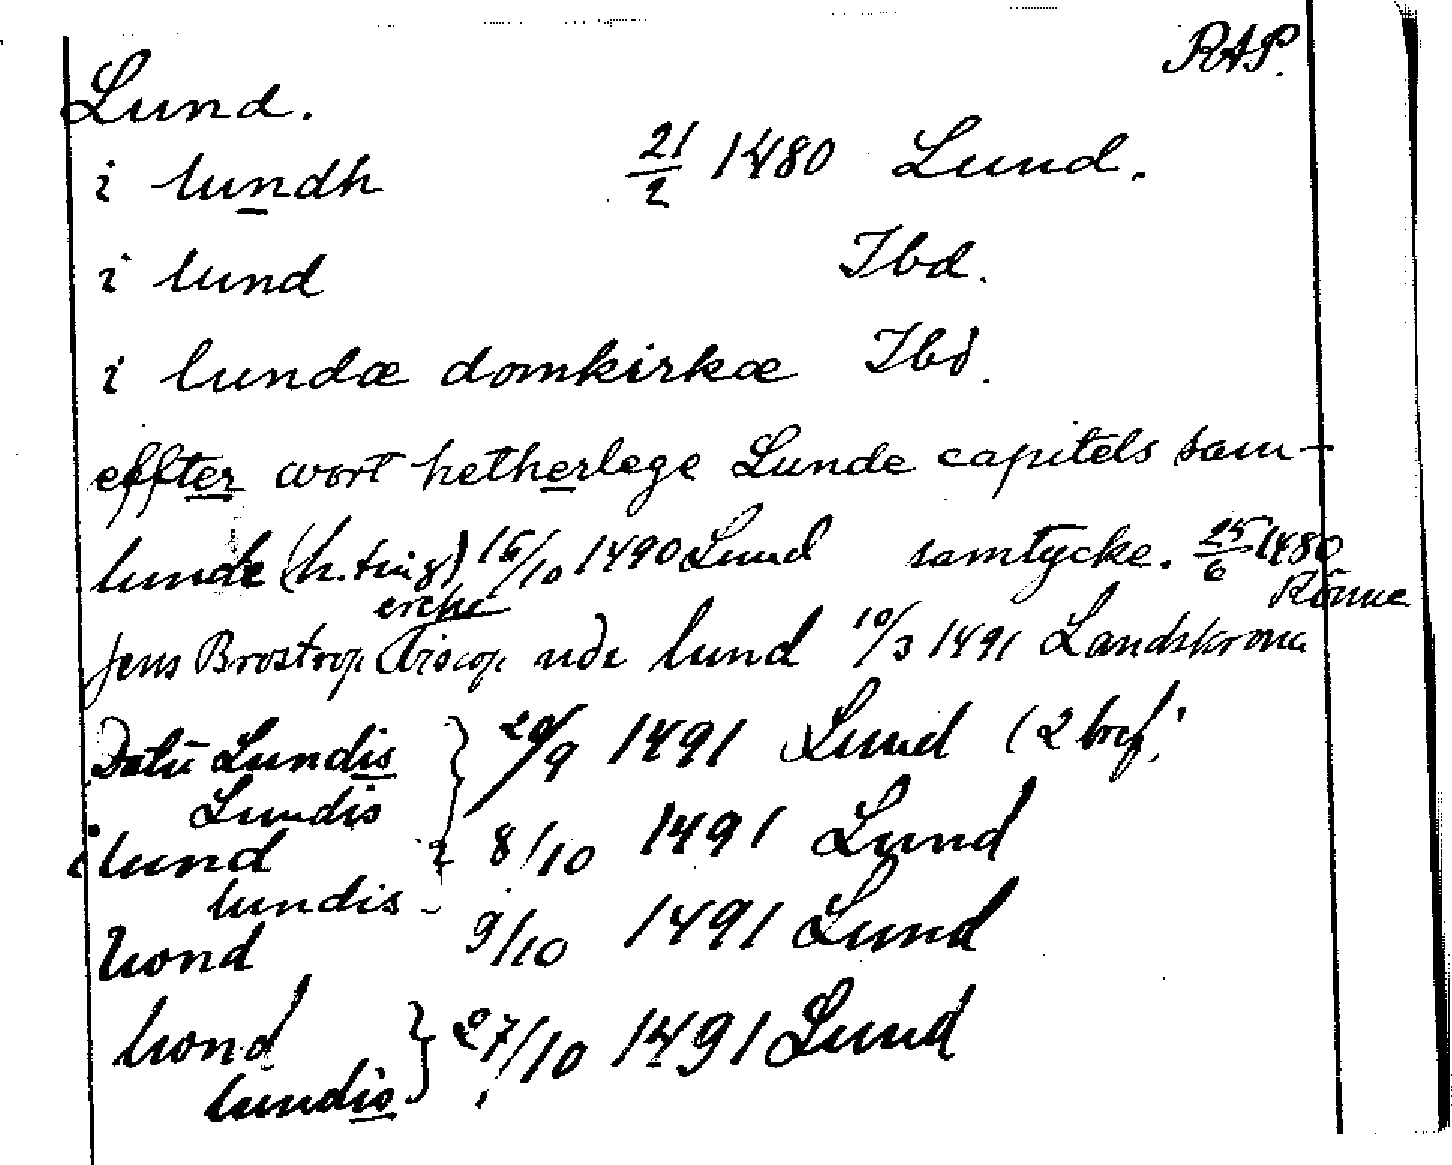 RAP.
Lund.
i lundh 21/2 1480 Lund.
i lund Ibd.
i lundæ domkirkæ Ibd.
effter wort hetherlege Lunde capitels sam-
lunde (h.ting) 15/10 1490 Lund samtycke. 25/6 1480
erche Rönne
Jens Brostrop Biscop udi lund 10/3 1491 Landskrona
Datū Lundis } 20/9 1491 Lund (2 bref)
Lundis
i lund 8/10 1491 Lund
lundis
lund 9/10 1491 Lund
lund } 27/10 1491 Lund
lundis